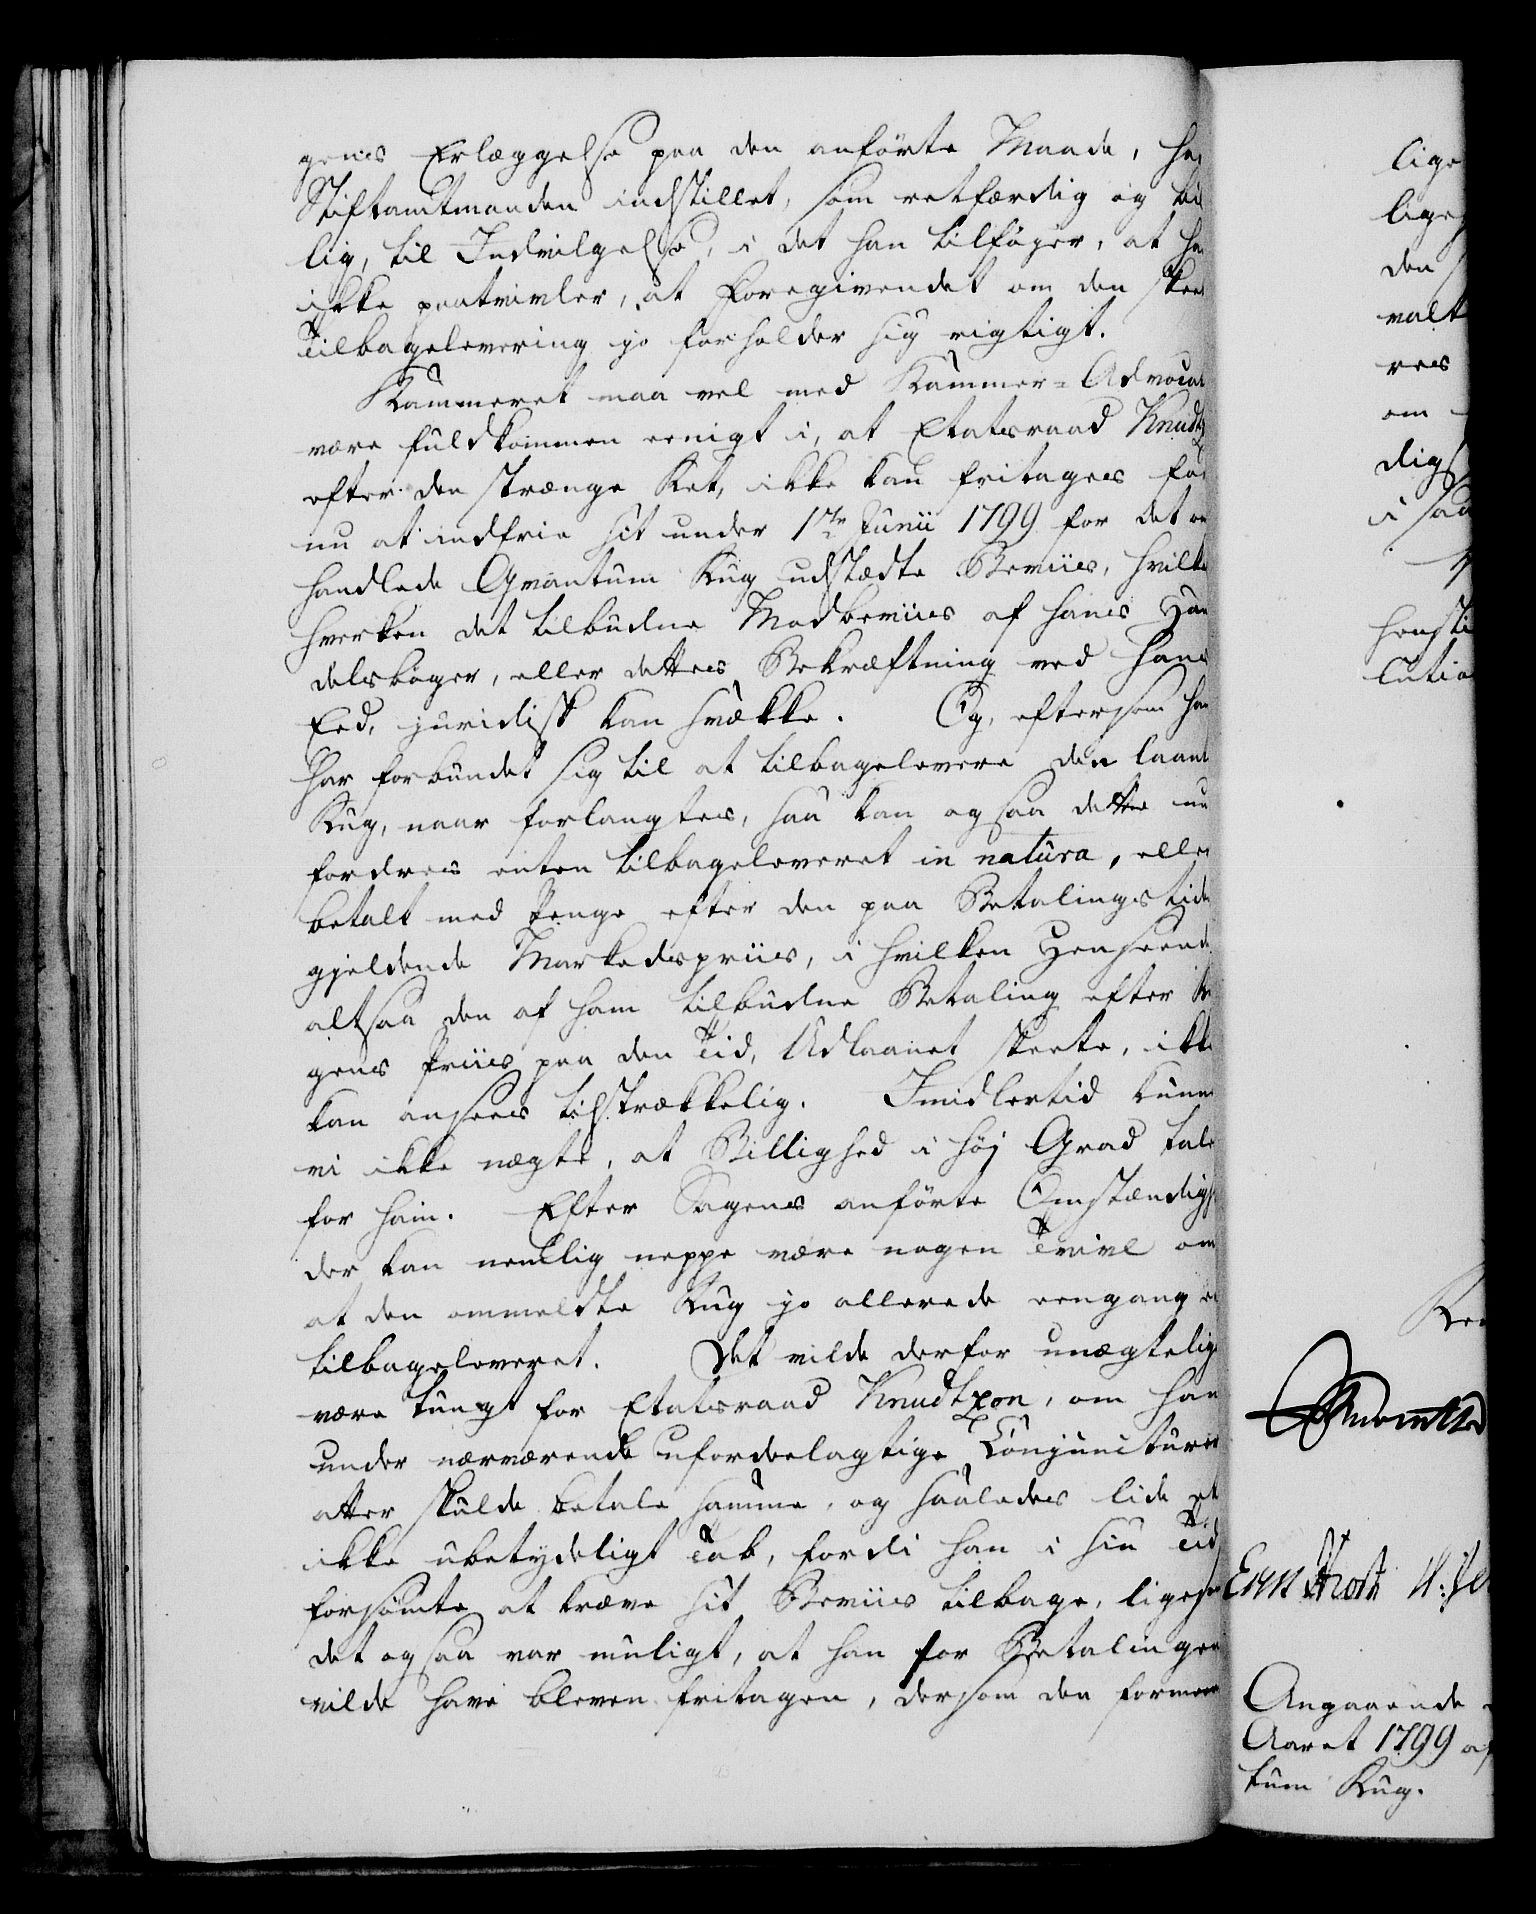 gens Erlæggelse paa den anförte Maade, ha
Stiftamtmanden indstillet, som retfærdig og bil
lig, til Indvilgelse, i det han tilföyer, at ha
ikke paatvivler, at Foregivendet om den skee
Tilbagelevering jo forholder sig rigtigt.
Kammeret maa vel med Kammer-Advocat
være fuldkommen eenigt i, at Etatsraad Knudtz
efter den strænge Ret, ikke kan fritages for
nu at indfrie sit under 17de Junii 1799 for det om
handlede Qvantum Rug udstædte Beviis, hvilke
hverken det tilbudne Modbeviis af hans Han
delsböger, eller dettes Bekræftning ved hans
Eed, juridisk kan svække. Og, eftersom han
har forbundet sig til at tilbagelevere den laant
Rug, naar forlangtes, saa kan ogsaa dette nu
fordres enten tilbageleveret in natura, eller
betalt med Penge efter den paa Betalingstide
gjeldende Markedspriis, i hvilken Henseende
altsaa den af ham tilbudne Betaling efter Ru
gens Priis paa den Tid, Udlaanet skeete, ikke
kan ansees tilstrækkelig. Imidlertid kunne
vi ikke nægte, at Billighed i höj Grad tale
for ham. Efter Sagens anförte Omstændigh
der kan nemlig neppe være nogen Tvivl om
at den ommeldte Rug jo allerede eengang er
tilbageleveret. Det vilde derfor unægtelig
være tungt for Etatsraad Knudtzon, om han
under nærværende ufordeelagtige Conjuncturer
atter skulde betale samme, og saaledes lide et
ikke ubetydeligt Tab, fordi han i sin Tid
forsömte at kræve sit Beviis tilbage, ligesom
det ogsaa var muligt, at han for Betalingen
vilde have bleven fritagen, dersom den formeen
lige
lige
den
valt
res
om
digh
i saa
henstil
lution
Angaaende
Aaret 1799 af
tum Rug.